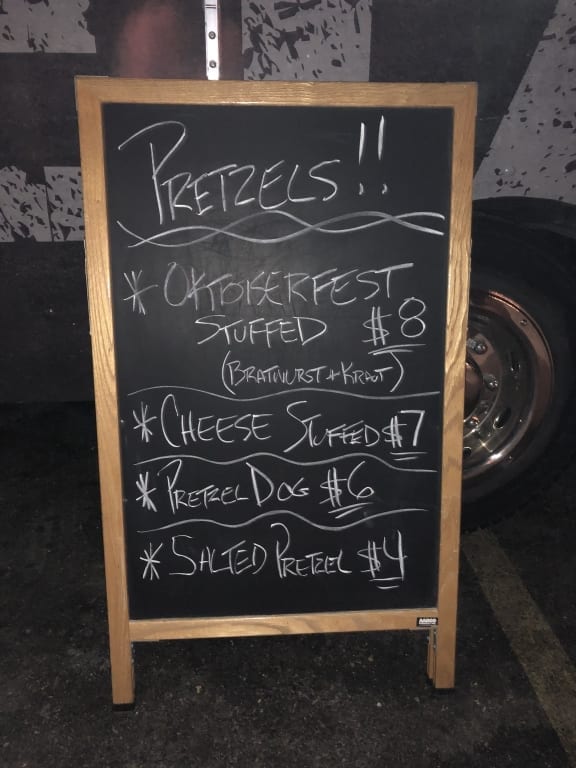 PRETZELS!!
* OKTOBERFEST
STUFFED $8
(BRATWURST + KRAUT)
* CHEESE STUFFED $7
* PRETZEL DOG $6
* SALTED PRETZEL $4